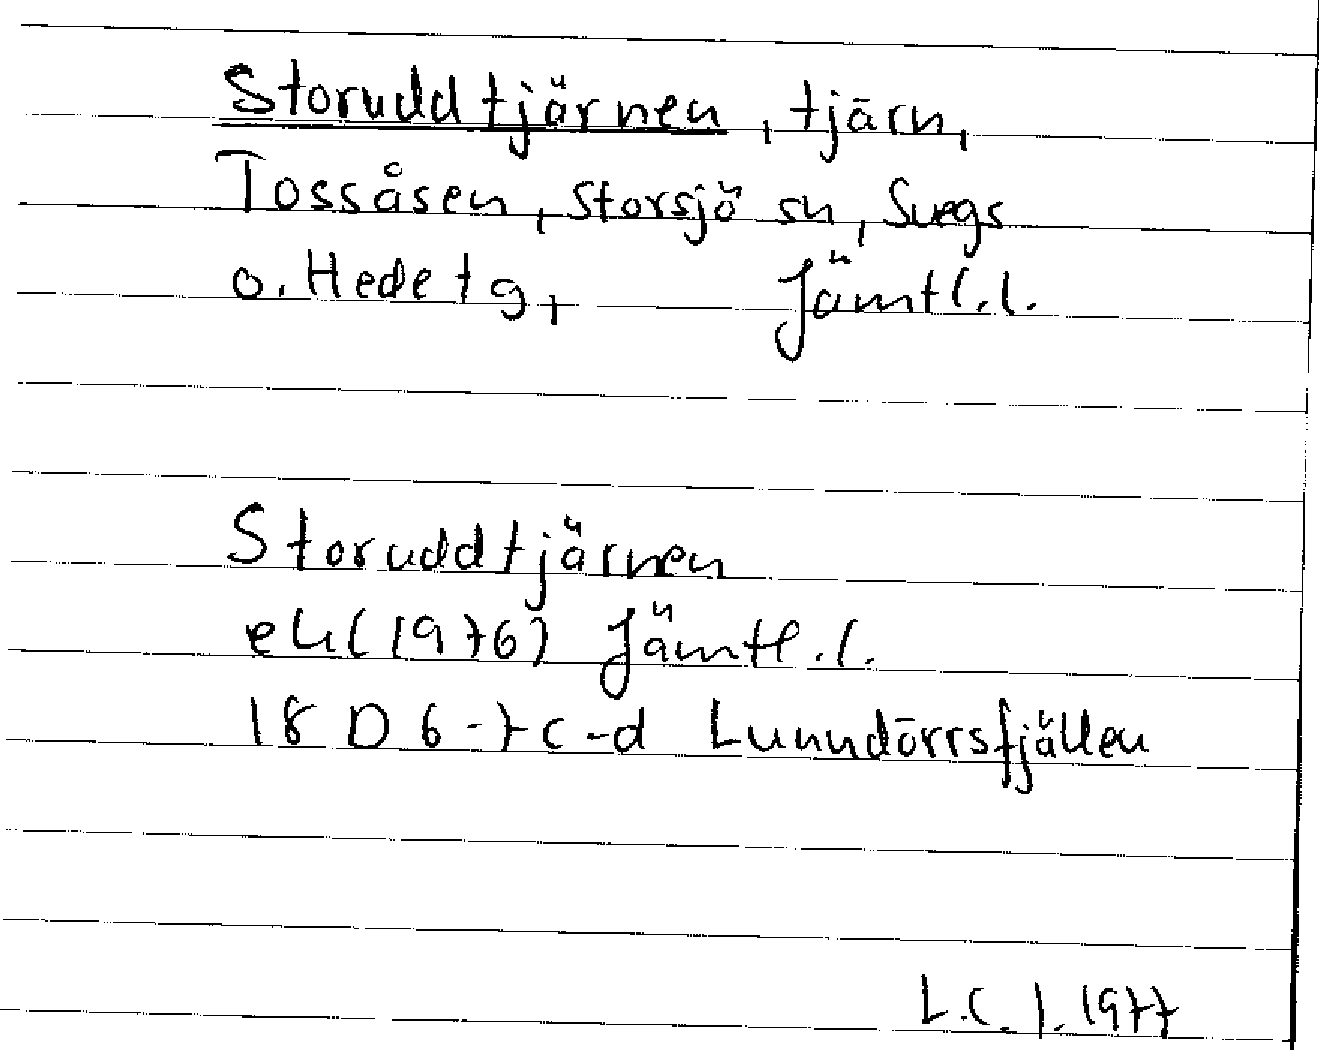 Storuddtjärnen, tjärn,
Tossåsen, Storsjö sn, Svegs
o. Hede tg, Jämtl.l.
Storuddtjärnen
ek(1976) Jämtl.l.
18 D 6-7c-d Lunndörrsfjällen
L.C.J. 1977